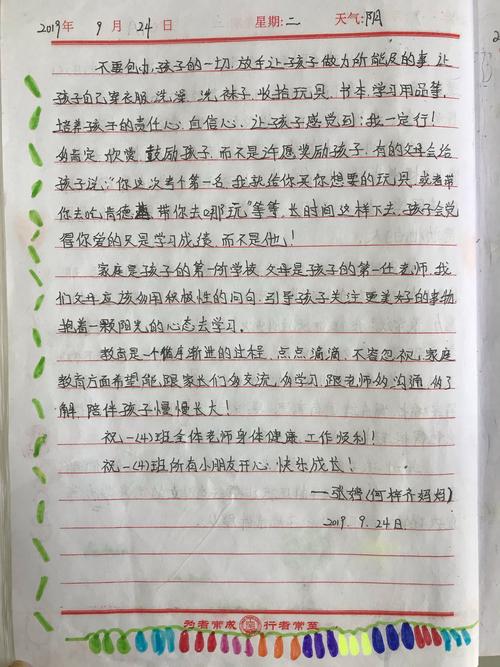 2019年 9月 24日 星期:二 天气:阴
不要包办孩子的一切,放手让孩子做力所能及的事,让
孩子自己穿衣服、洗澡、洗袜子、收拾玩具、书本、学习用品等,
培养孩子的责任心、自信心,让孩子感觉到:我一定行!
多肯定、欣赏、鼓励孩子,而不是许愿奖励孩子,有的父母会给
孩子说:“你这次考个第一名,我就给你买你想要的玩具,或者带
你去吃肯德基,带你去哪玩”等等,长时间这样下去,孩子会觉
得你爱的只是学习成绩,而不是他!
家庭是孩子的第一所学校,父母是孩子的第一任老师,我
们父母应该多用积极性的问句,引导孩子关注更美好的事物,
抱着一颗阳光的心态去学习。
教育是一个循序渐进的过程,点点滴滴,不容忽视,家庭
教育方面希望能跟家长们多交流,多学习,跟老师多沟通,多了
解,陪伴孩子慢慢长大!
祝一(4)班全体老师身体健康,工作顺利!
祝一(4)班所有小朋友开心、快乐成长!
——张婷(何梓齐妈妈)
2019.9.24日
为者常成 行者常至